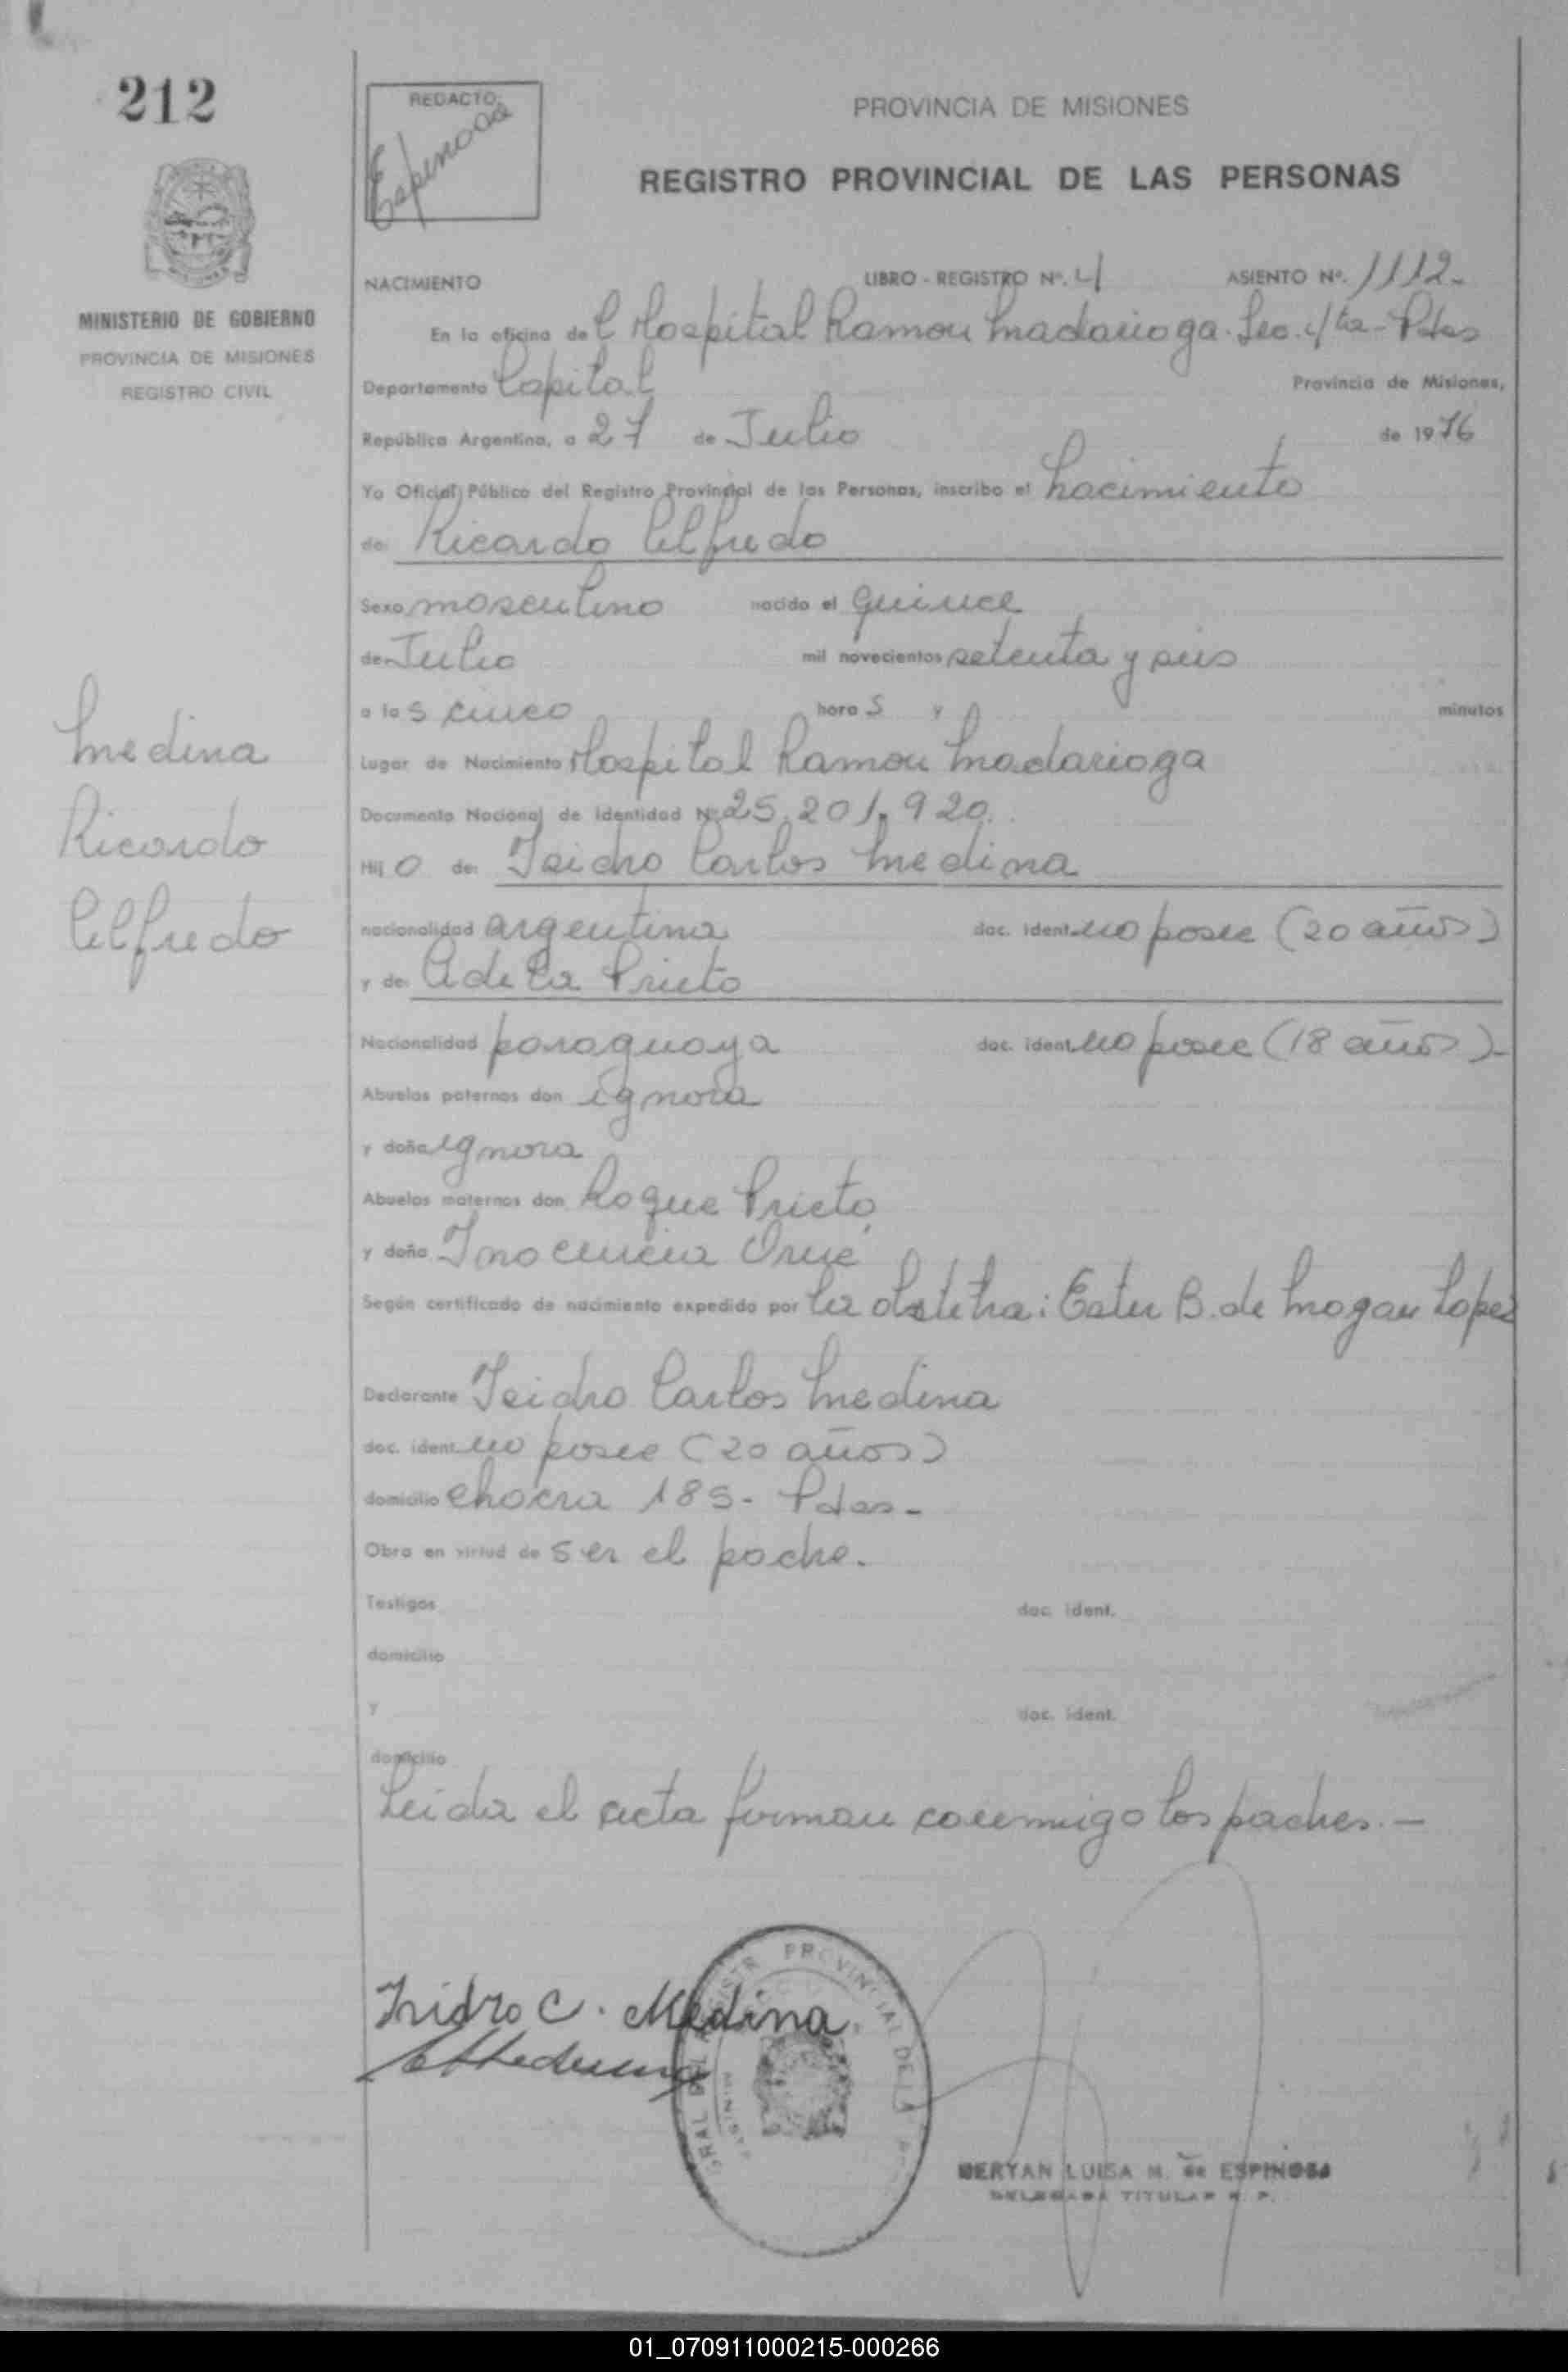 212
REDACTO:
Espinosa
PROVINCIA DE MISIONES
REGISTRO PROVINCIAL DE LAS PERSONAS
MINISTERIO DE GOBIERNO
PROVINCIA DE MISIONES
REGISTRO CIVIL
NACIMIENTO LIBRO - REGISTRO Nº. 4 ASIENTO Nº. 1112-
En la oficina de l Hospital Ramon Madariaga. Sec. 4ta - Pdas
Departamento Capital Provincia de Misiones,
República Argentina, a 27 de Julio de 1976
Yo Oficial Público del Registro Provincial de las Personas, inscribo el nacimiento
de: Ricardo Alfredo
Sexo masculino nacido el quince
de Julio mil novecientos setenta y seis
a las cinco horas y minutos
Lugar de Nacimiento Hospital Ramon Madariaga
Documento Nacional de Identidad Nº 25.201.920.
Hijo de: Isidro Carlos Medina
nacionalidad argentina doc. ident. no posee (20 años)
y de: Adela Prieto
Nacionalidad paraguaya doc. ident. no posee (18 años)-
Abuelos paternos don ignora
y doña ignora
Abuelos maternos don Roque Prieto
y doña Inocencia Orué
Según certificado de nacimiento expedido por la obstetra: Ester B. de Mogan Lopez
Declarante Isidro Carlos Medina
doc. ident. no posee (20 años)
domicilio chacra 185- Pdas-
Obra en virtud de ser el padre.
Testigos doc. ident.
domicilio
y doc. ident.
domicilio
Leida el acta firman conmigo los padres.-
Medina
Ricardo
Alfredo
Isidro C. Medina
REGISTR PROVINCIAL DE LA
BERYAN LUISA M. de ESPINOSA
DELEGADA TITULAR R. P.
01_070911000215-000266